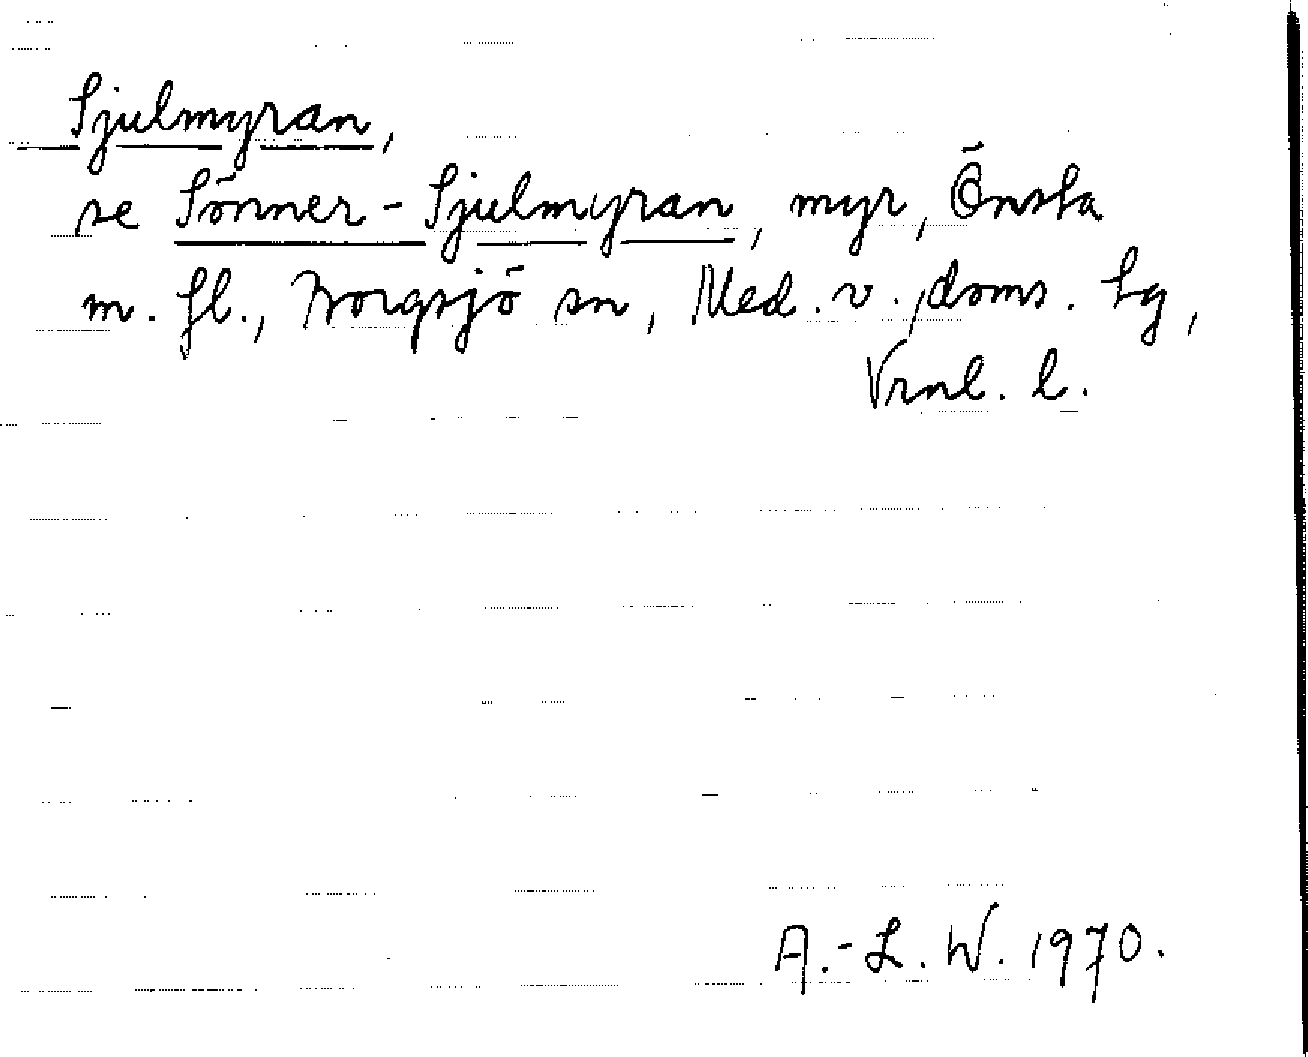 Sjulmyran,
se Sönner-Sjulmyran, myr, Önsta
m. fl., Borgsjö sn, Med. v. doms. tg,
Vrnl. l.
A.-L. W. 1970.